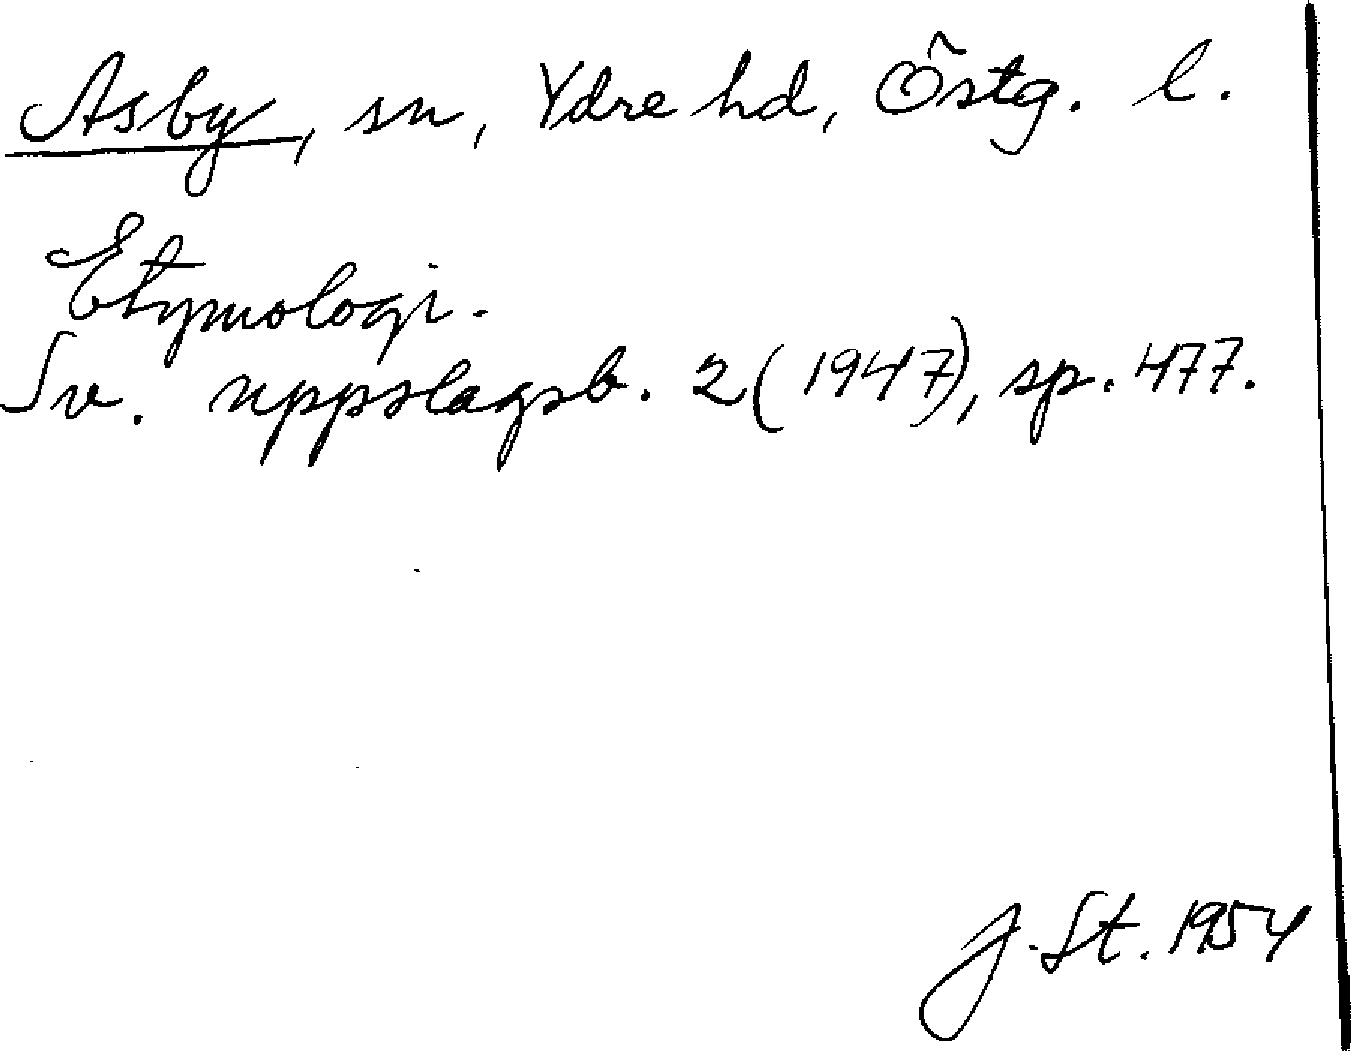 Asby, sn, Ydre hd, Östg. l.
Etymologi.
Sv. uppslagsb. 2 (1947), sp. 477.
J. St. 1954